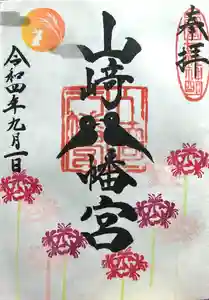 奉拝
山崎八幡宮
令和四年九月一日